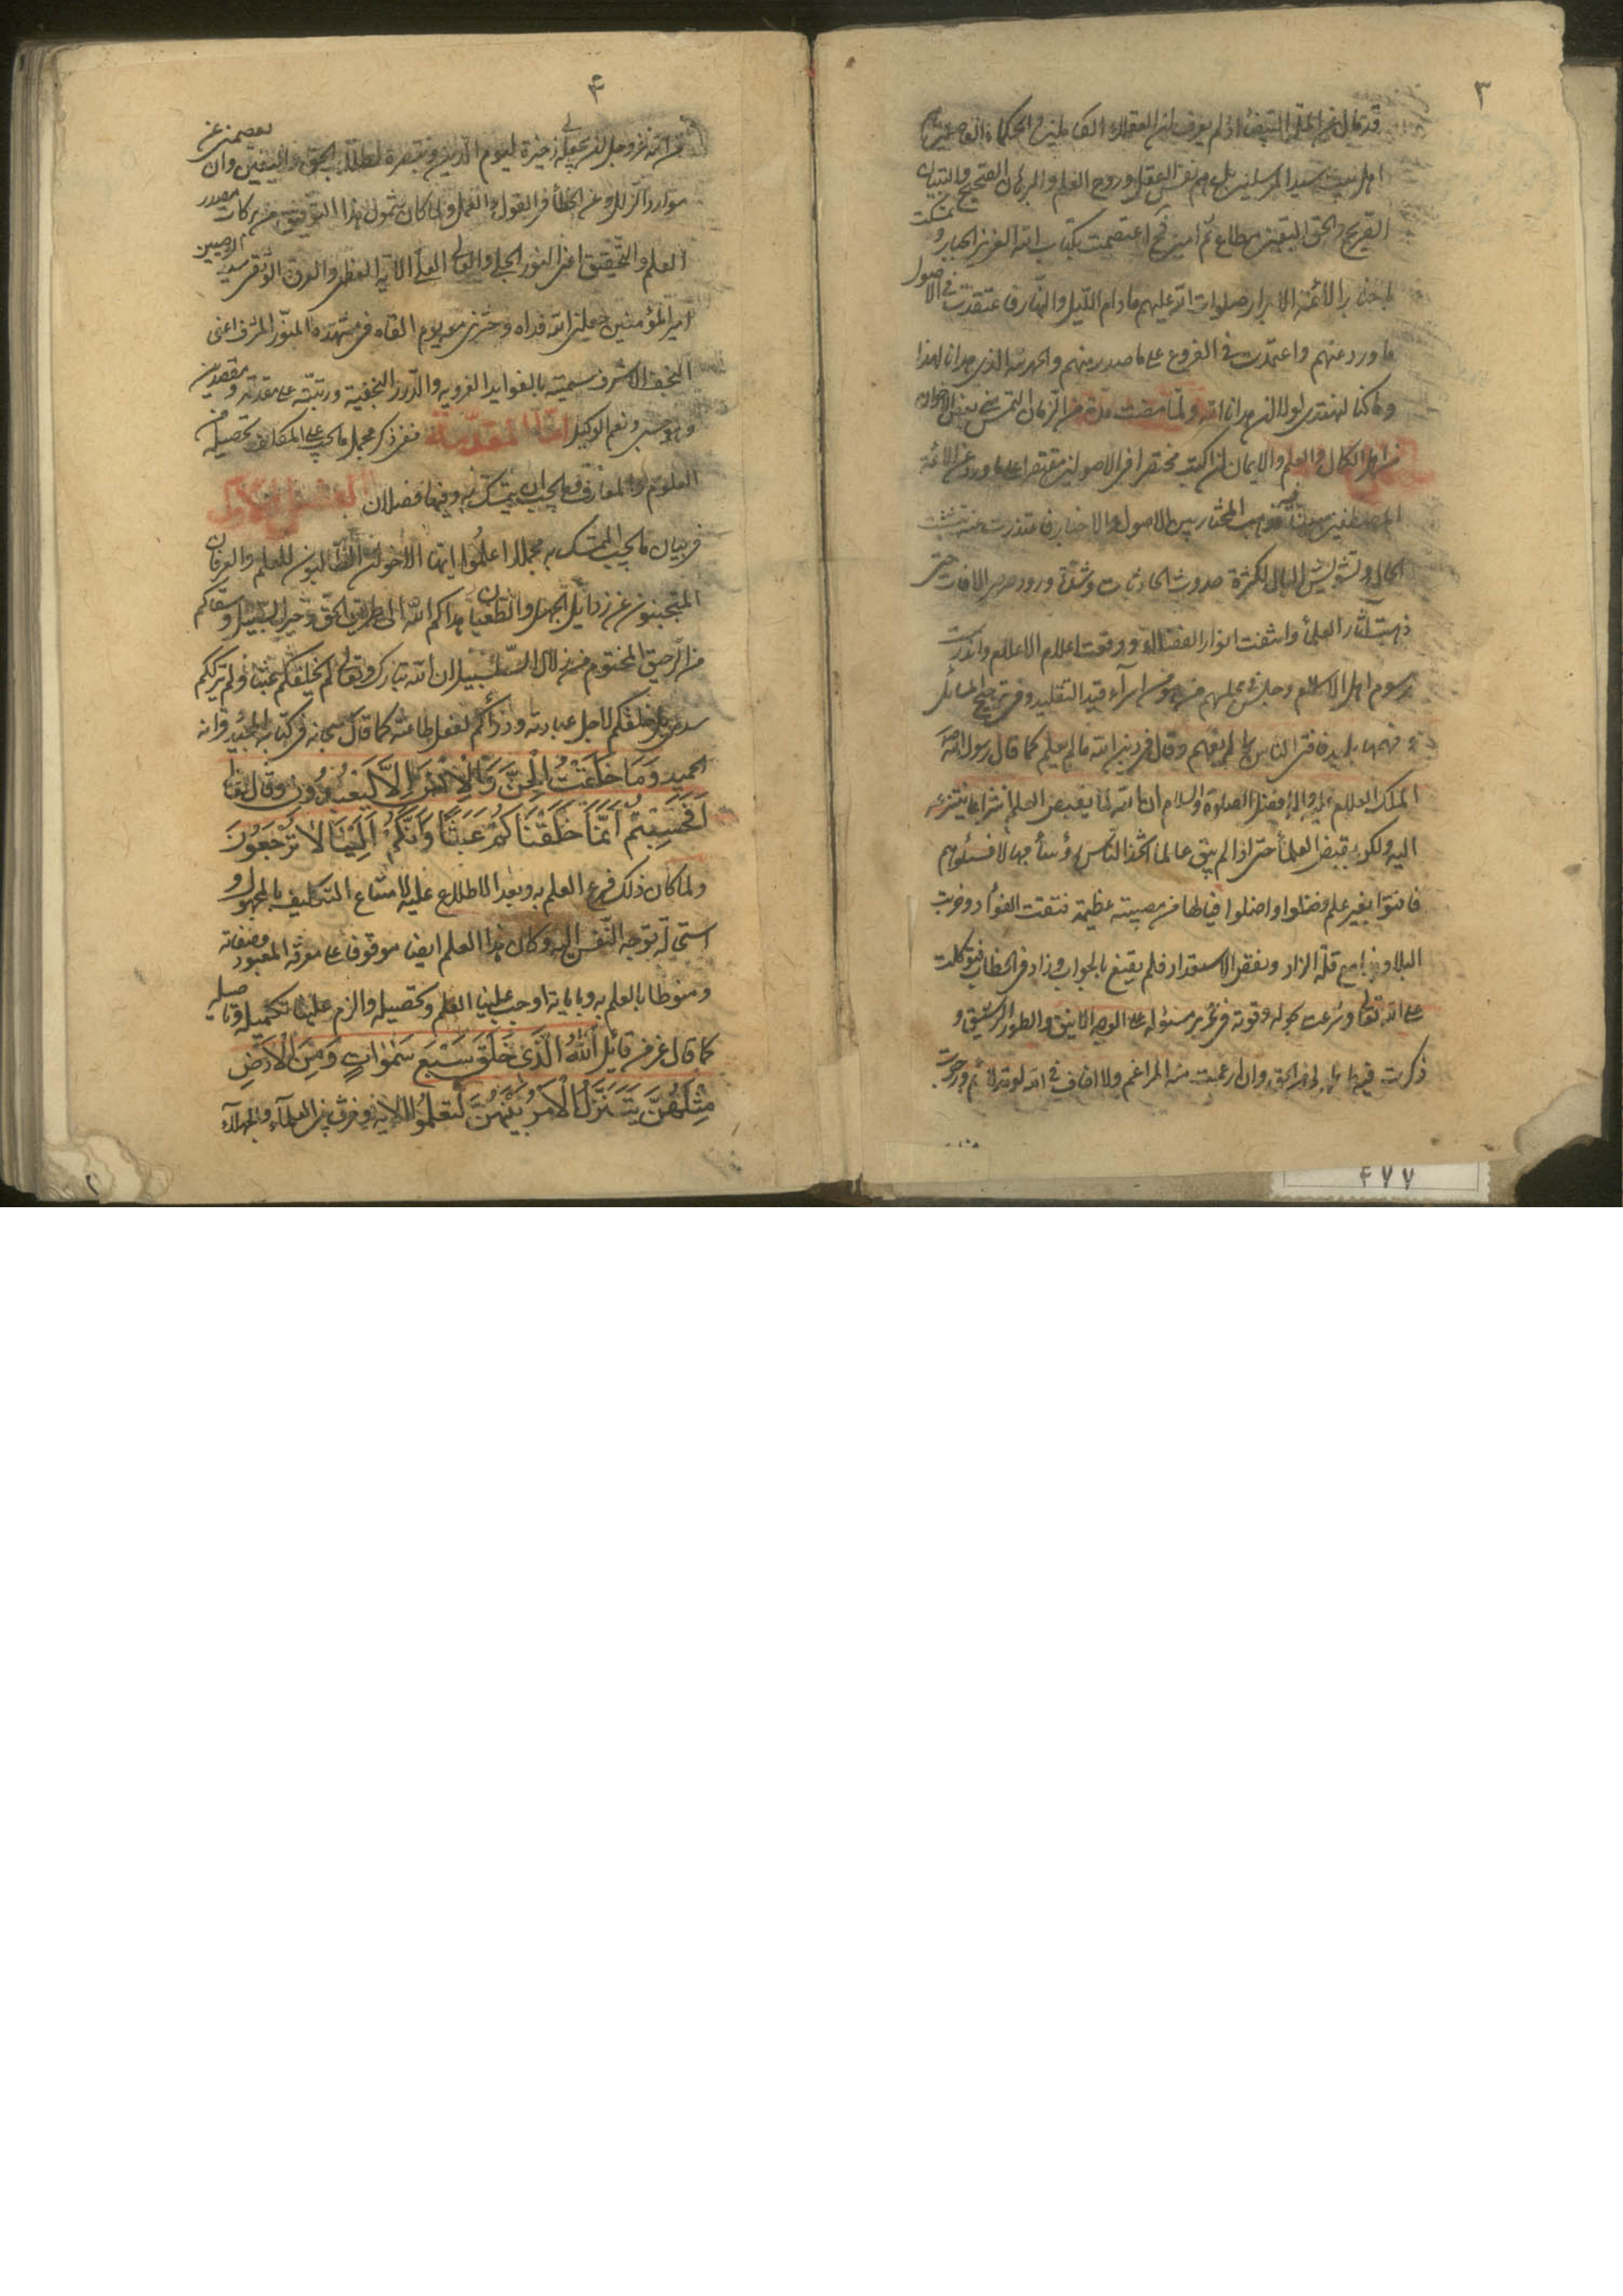 ٣
اهل بيت سيد المرسلين بل هم نفس العقل وروح العلم والبرهان الصحيح والتبيان
الصريح والحق اليقين مطاع ثم امين فح اعتصمت بكتاب الله العزيز الجبار و تمسكت
الائمة الابرار صلوات الله عليهم ما دام الليل والنهار فاعتقدت في الاصول
ما ورد عنهم واعتمدت في الفروع على ما صدر منهم والحمد لله الذي هدانا لهذا
وما كنا لنهتدي لولا ان هدانا الله ولما مضت مدة من الزمان التمس مني بعض الاخوان
من اهل الكمال والعلم والايمان ان اكتب مختصرا في الاصولين مقتصرا على ما ورد عن الائمة
المصطفين المختار بين الاصول والاخبار فاعتذرت منه بتشتت
الحال وتشويش البال لكثرة صدوث الحادثات وشدة ورود صرصر الافات حتى
ذهبت آثار العلمأ وانتفت انوار الفضلاء ووقعت اعلام الاعلام واندرست
رسوم اهل الاسلام وجلس مجلسهم من هو من اسرآء قيد التقليد وفي ترجيح المسائل
وفهمها بليد فافتى الناس بما لم يفهم وقال في دين الله ما لم يعلم كما قال رسول الله
الملك العلام عليه واله افضل الصلوة والسلام ان الله لا يقبض العلم انتزاعا ينتزعه
اليه ولكن يقبض العلمأ حتى اذا لم يبق عالما اتخذ الناس رؤسأ جهالا فسئلوهم
فافتوا بغير علم فضلوا واضلوا فيا لها من مصيبته عظيمة فتفتت الفؤاد وخربت
البلاد مع قلة الزاد وفقد الاستعداد فلم يقنع بالجواب وزاد في الخطاب فتوكلت
على الله تعالى وشرعت بحوله وقوته في تحرير مسئوله على الوجه الانيق والطور الرشيق و
ذكرت فيها ما هو الحق وان رغمت منه المراغم ولا اخاف في الله لومة لائم ورجوت
٤٧٧
۴
من الله عز وجل ان يجعله لي ذخيرة ليوم الدين وتبصرة لطلاب الحق واليقين وان يعصمني عن
موارد الزلل وعن الخطأ في القول والعمل ولما كان شمول هذا التوفيق من بركات مصدر
العلم والتحقيق اعني النور الجلي والعالي العلي الآية العظمى والعروة الوثقى سيد الوصيين
امير المؤمنين جعلني الله فداه وحشرني معه يوم القاه في مشهده المنور المشرف اعني
النجف الاشرف سميته بالفوايد الغروية والدرر النجفية ورتبته على مقدمة و مقصدين
وهو حسبي ونعم الوكيل امّا المقدّمة ففي ذكر مجمل ما يجب على المكلف تحصيله من
العلوم والمعارف وما يجب ان يتمسك به وفيها فصلان الفصل الاول
في بيان ما يجب التمسك به مجملا اعلموا ايها الاخوان الطالبون للعلم والعرفان
المتجنبون عن رذايل الجهل والطغيان هداكم الله الى طريق الحق وخير السبيل وسقاكم
من الرحيق المختوم من زلال السلسبيل ان الله تبارك وتعالى لم يخلقكم عبثا ولم يترككم
سدى بل خلقكم لاجل عبادته وذرأكم لفعل طاعته كما قال سبحانه في كتابه المجيد وقرانه
الحميد وَمَا خَلَقْتُ الْجِنَّ وَالْاِنْسَ اِلَّا لِيَعْبُدُونِ وقال تعالى
اَفَحَسِبْتُمْ اَنَّمَا خَلَقْنَاكُمْ عَبَثًا وَاَنَّكُمْ اِلَيْنَا لَا تُرْجَعُونَ
ولما كان ذلك فرع العلم به وبعد الاطلاع عليه لامتناع التكليف بالمجهول و
استحالة توجه النفس اليه وكان هذا العلم ايضا موقوفا على معرفة المعبود وصفاته
ومنوطا بالعلم به وباياته اوجب علينا العلم وتحصيله والزم علينا تكميله وتاصيله
كما قال عز من قائل اَللّٰهُ الَّذِي خَلَقَ سَبْعَ سَمٰوَاتٍ وَمِنَ الْاَرْضِ
مِثْلَهُنَّ يَتَنَزَّلُ الْاَمْرُ بَيْنَهُنَّ لِتَعْلَمُوا الاية وفرق بين العلمآء والجهلاء